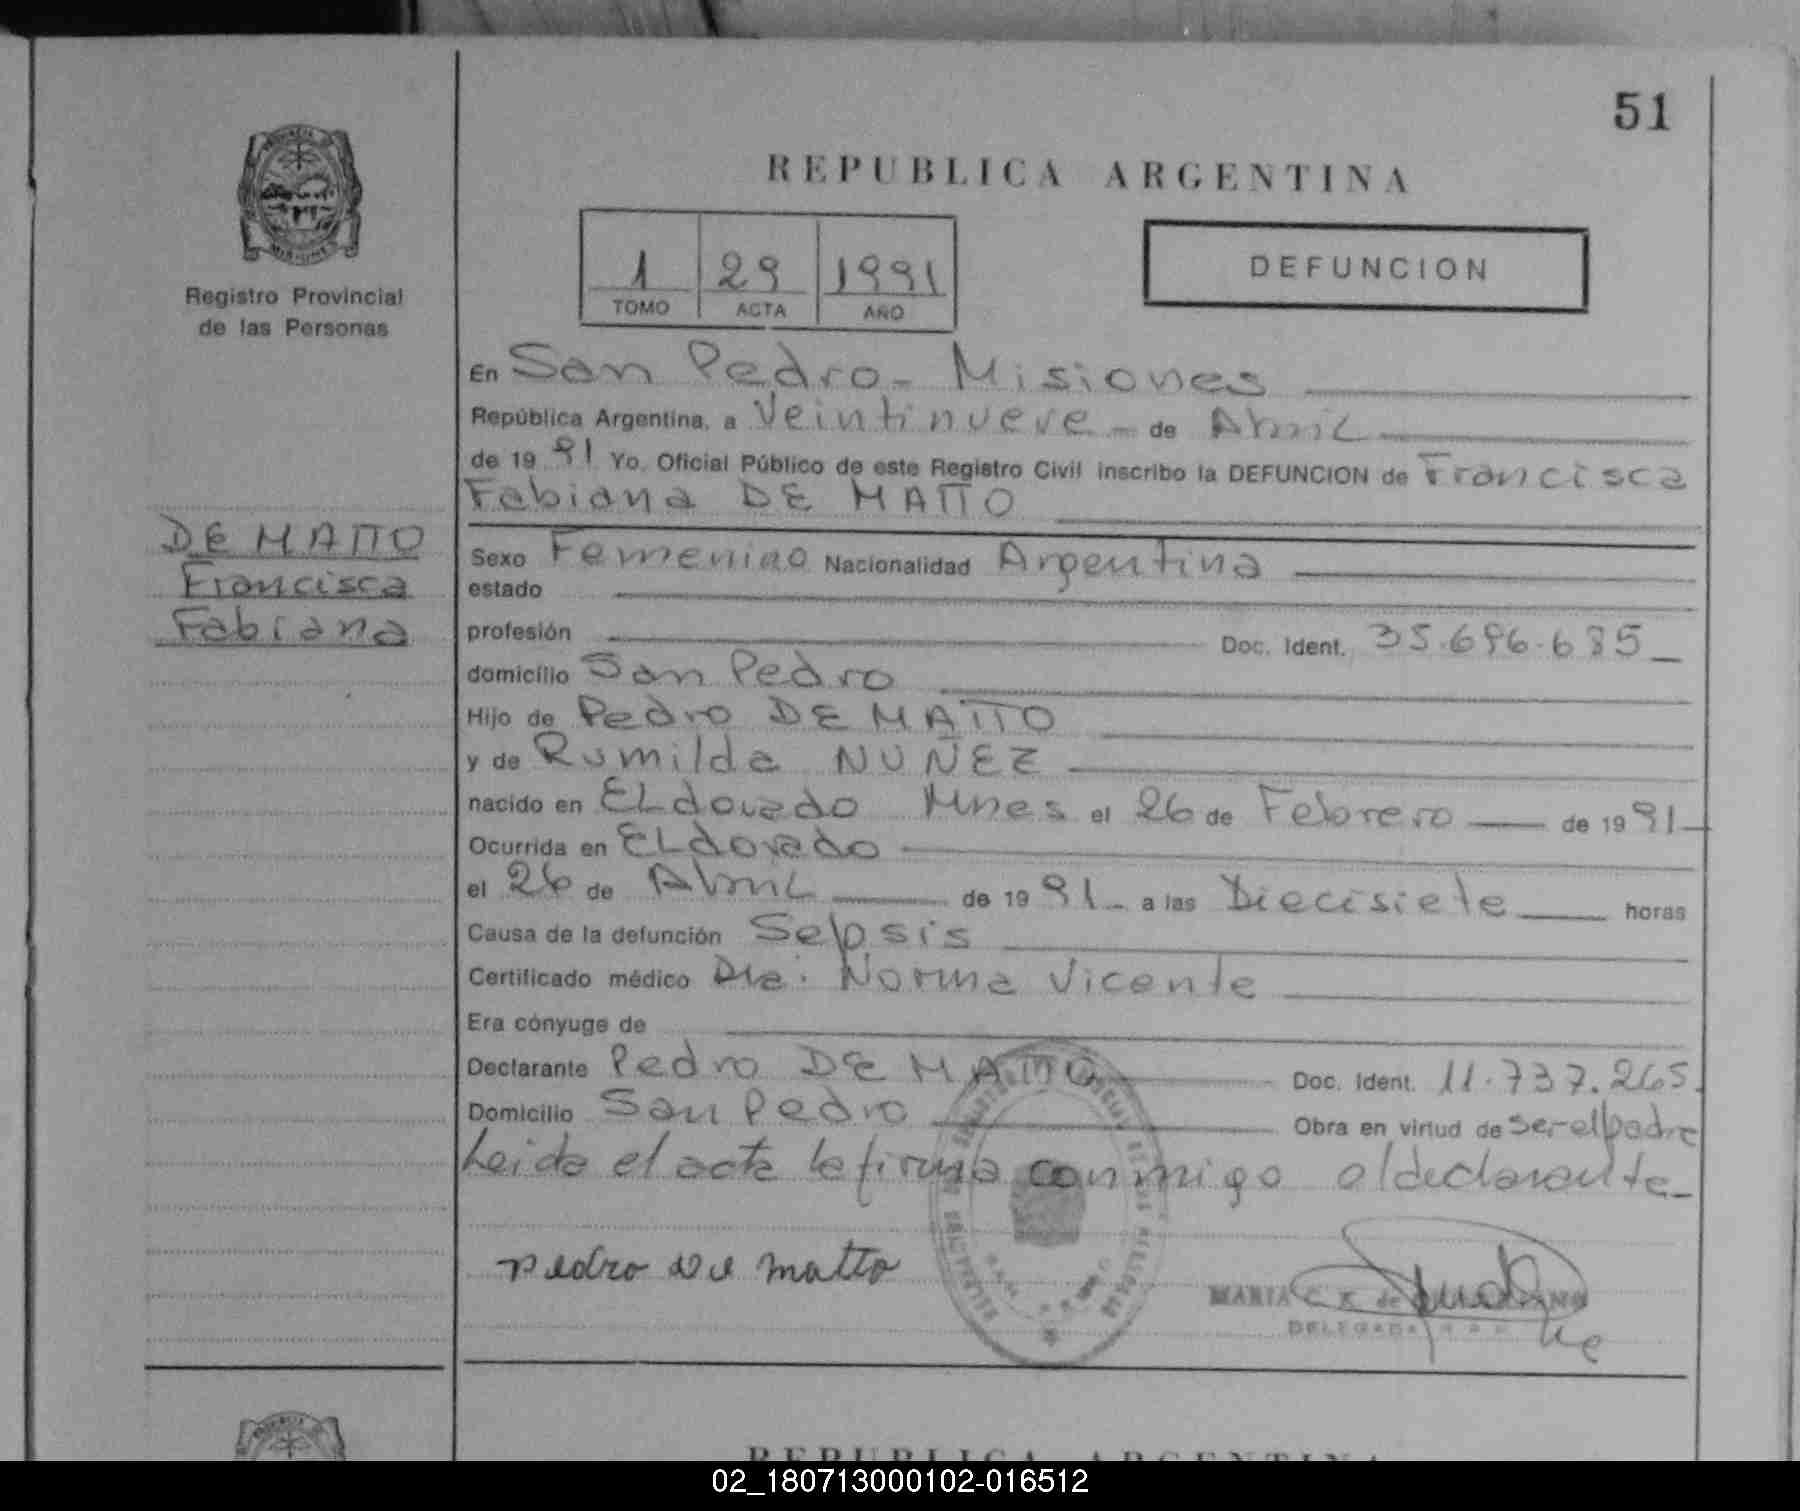 51
REPUBLICA ARGENTINA
PROVINCIA
MISIONES
Registro Provincial
de las Personas
1 29 1991
TOMO ACTA AÑO
DEFUNCION
En San Pedro - Misiones
República Argentina, a Veintinueve - de Abril
de 19 91 Yo, Oficial Público de este Registro Civil inscribo la DEFUNCION de Francisca
Fabiana DE MATTO
DE MATTO
Francisca
Fabiana
Sexo Femenino Nacionalidad Argentina
estado
profesión Doc. Ident. 35.696.685
domicilio San Pedro
Hijo de Pedro DE MATTO
y de Rumilda NUÑEZ
nacido en ELdorado Mnes el 26 de Febrero de 19 91
Ocurrida en ELdorado
el 26 de Abril de 19 91 a las Diecisiete horas
Causa de la defunción Sepsis
Certificado médico Dra. Norma Vicente
Era cónyuge de
Declarante Pedro DE MATTO Doc. Ident. 11.737.265.
Domicilio San Pedro Obra en virtud de ser el padre
Leida el acta la firma conmigo el declarante
Pedro De matto
MARIA C. K. de
DELEGADA
REPUBLICA ARGENTINA
02_180713000102-016512